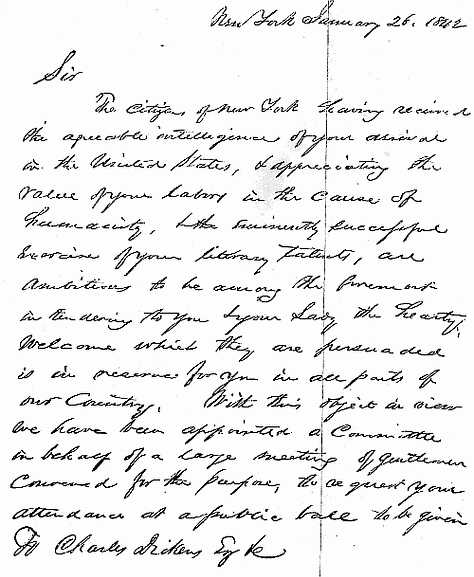 New York January 26. 1842
Sir
The Citizens of New York having received
the agreeable intelligence of your arrival
in the United States, & appreciating the
value of your labors in the cause of
humanity, & the eminently successful
exercise of your literary talents, are
ambitious to be among the foremost
in tendering to you & your Lady the hearty
welcome which they are persuaded
is in reserve for you in all parts of
our Country. With this object in view
we have been appointed a Committee
in behalf of a large meeting of gentlemen
convened for the purpose, to request your
attendance at a public ball to be given
To Charles Dickens Esq &c